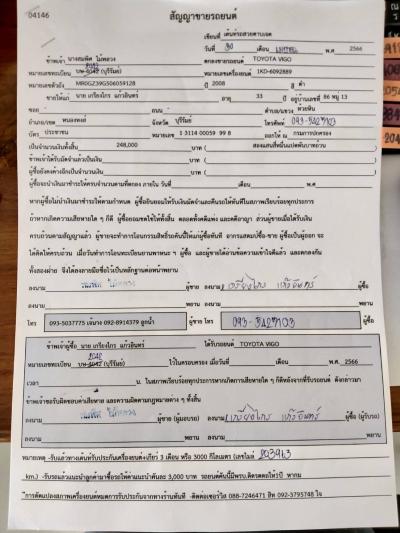 04146
สัญญาขายรถยนต์
เขียนที่ เต็นท์รถสวยตามเจต
วันที่ 30 เดือน พ.ศ. 2566
ข้าพเจ้า นางสมพิศ ไม้ทลวง ตกลงขายรถยนต์ TOYOTA VIGO
2042
หมายเลขทะเบียน บพ-4042 (บุรีรัมย์) หมายเลขเครื่องยนต์ 1KD-6092889
หมายเลขตัวถัง MR0GZ39G506059128 ปี 2008 สี ดำ
ขายให้แก่ นาย เกรียงไกร แก้วอินทร์ อายุ 33 ปี อยู่บ้านเลขที่ 86 หมู่ 13
ซอย - ถนน - ตำบล/แขวง ห้วยหิน
อำเภอ/เขต หนองหงส์ จังหวัด บุรีรัมย์ โทรศัพท์ 093-3427103
บัตร ประชาชน หมายเลข 1 3114 00059 99 8 ออกให้ ณ กรมการปกครอง
เป็นจำนวนเงินทั้งสิ้น 248,000 บาท ( สองแสนสี่หมื่นแปดพันบาทถ้วน
ข้าพเจ้าได้รับมัดจำแล้วเป็นเงิน บาท (
ผู้ซื้อยังคงค้างอีกเป็นจำนวนเงิน บาท (
ผู้ซื้อจะนำเงินมาชำระให้ครบจำนวนตามที่ตกลง ภายใน วันที่ เดือน พ.ศ.
หากผู้ซื้อไม่นำเงินมาชำระให้ตามกำหนด ผู้ซื้อยินยอมให้ริบเงินมัดจำและคืนรถให้ทันทีในสภาพเรียบร้อยทุกประการ
ถ้าหากเกิดความเสียหายใด ๆ ก็ดี ผู้ซื้อยอมชดใช้ให้ทั้งสิ้น ตลอดทั้งคดีแพ่ง และคดีอาญา ส่วนผู้ขายเมื่อได้รับเงิน
ครบถ้วนตามสัญญาแล้ว ผู้ขายจะทำการโอนกรรมสิทธิ์รถคันนี้ให้แก่ผู้ซื้อทันที อากรแสตมป์ซื้อ-ขาย ผู้ซื้อเป็นผู้ออก จะ
ได้คิดให้ครบถ้วน เมื่อวันทำการโอนทะเบียนยานพาหนะ ฯ ผู้ซื้อ และผู้ขายได้อ่านข้อความเข้าใจดีแล้ว และตกลงกัน
ทั้งสองฝ่าย จึงได้ลงลายมือชื่อไว้เป็นหลักฐานต่อหน้าพยาน
ลงนาม สมพิศ ไม้ทลวง ผู้ขาย ลงนาม เกรียงไกร แก้วอินทร์ ผู้ซื้อ
ลงนาม พยาน ลงนาม พยาน
โทร 093-5037775 เจ้นาง 092-8914379 ลูกน้ำ ผู้ขาย โทร 093-3427103 ผู้ซื้อ
ข้าพเจ้าผู้ซื้อ นาย เกรียงไกร แก้วอินทร์ ได้รับรถยนต์ TOYOTA VIGO
2042
หมายเลขทะเบียน บพ-4042 (บุรีรัมย์) ไว้ในครอบครอง เมื่อวันที่ เดือน พ.ศ. 2566
เวลา น. ในสภาพเรียบร้อยทุกประการหากเกิดการเสียหายใด ๆ ก็ดีหลังจากที่รับรถยนต์ ดังกล่าวมา
ข้าพเจ้าขอรับผิดชอบค่าเสียหาย และความผิดตามกฎหมายต่าง ๆ ทั้งสิ้น
ลงนาม สมพิศ ไม้ทลวง ผู้ขาย (ผู้มอบรถ) ลงนาม เกรียงไกร แก้วอินทร์ ผู้ซื้อ (ผู้รับรถ)
ลงนาม พยาน ลงนาม พยาน
หมายเหตุ -รับแล้วทางเต็นท์รับประกันเครื่องยนต์+เกียร์ 3 เดือน หรือ 3000 กิโลเมตร (เลขไมล์ 203963
km.) -รับรถแล้วแนะนำลูกค้ามาซื้อรถให้ค่าแนะนำคันละ 3,000 บาท
*การดัดแปลงสภาพเครื่องยนต์หมดการรับประกันจากทางร้านทันที -ติดต่อเซอร์วิส 088-7246471 สิท 092-3795748 ไจ